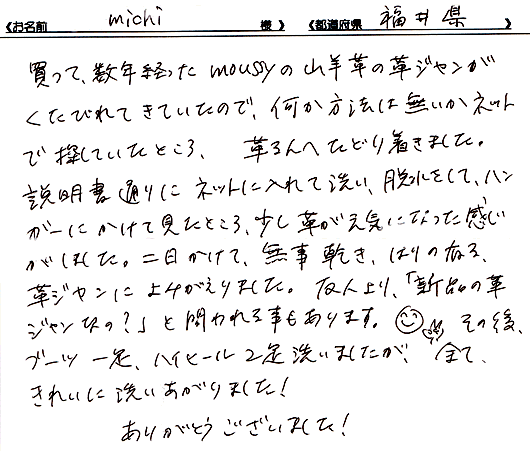 《お名前 michi 様》 《都道府県 福井県 》
買って、数年経った moussyの山羊革の革ジャンが
くたびれてきていたので、何か方法は無いかネット
で探していたところ、革るんへたどり着きました。
説明書通りにネットに入れて洗い、脱水をして、ハン
ガーにかけて見たところ、少し革が元気になった感じ
がしました。二日かけて、無事乾き、はりの有る、
革ジャンによみがえりました。友人より、「新品の革
ジャンなの?」と問われる事もあります。 その後、
ブーツ一足、ハイヒール2足洗いましたが、全て、
きれいに洗いあがりました!
ありがとうございました!